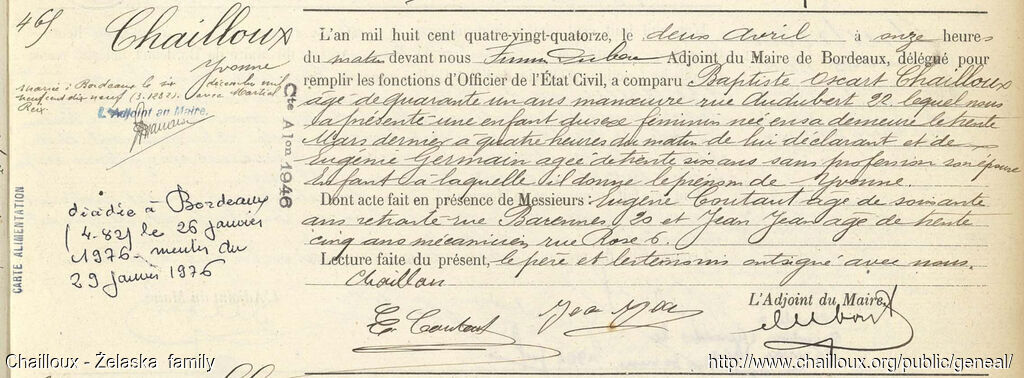 465
Chailloux
Yvonne
mariée à Bordeaux le six décembre mil
neuf cent dix neuf (3.1282). avec Martial
Reix
L'Adjoint au Maire,
décédée à Bordeaux
(4-82) le 26 janvier
1976 - mention du
29 janvier 1976
CARTE ALIMENTATION
Cte Alon 1946
L'an mil huit cent quatre-vingt-quatorze, le deux avril à onze heures
du matin devant nous Firmin Dubou Adjoint du Maire de Bordeaux, délégué pour
remplir les fonctions d'Officier de l'État Civil, a comparu Baptiste Oscart Chailloux
âgé de quarante un ans manœuvre rue Audubert 22 lequel nous
a présenté une enfant du sexe féminin née en sa demeure le trente
Mars dernier à quatre heures du matin de lui déclarant et de
Eugénie Germain agée de trente six ans sans profession son épouse
Enfant à laquelle il donne le prénom de Yvonne.
Dont acte fait en présence de Messieurs: Eugène Coutant âgé de soixante
ans retraité rue Barennes 20 et Jean Jean âgé de trente
cinq ans mécanicien rue Rose 6.
Lecture faite du présent, le père et les témoins ont signé avec nous.
Chaillou
L'Adjoint du Maire,
E. Coutant
Chailloux - Żelaska family
http://www.chailloux.org/public/geneal/